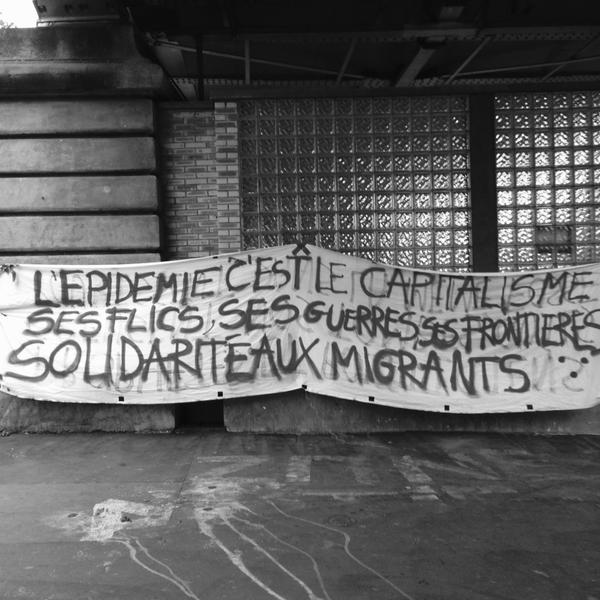 L'EPIDEMIE C'EST LE CAPITALISME
SES FLICS, SES GUERRES, SES FRONTIERES
SOLIDARITÉ AUX MIGRANTS